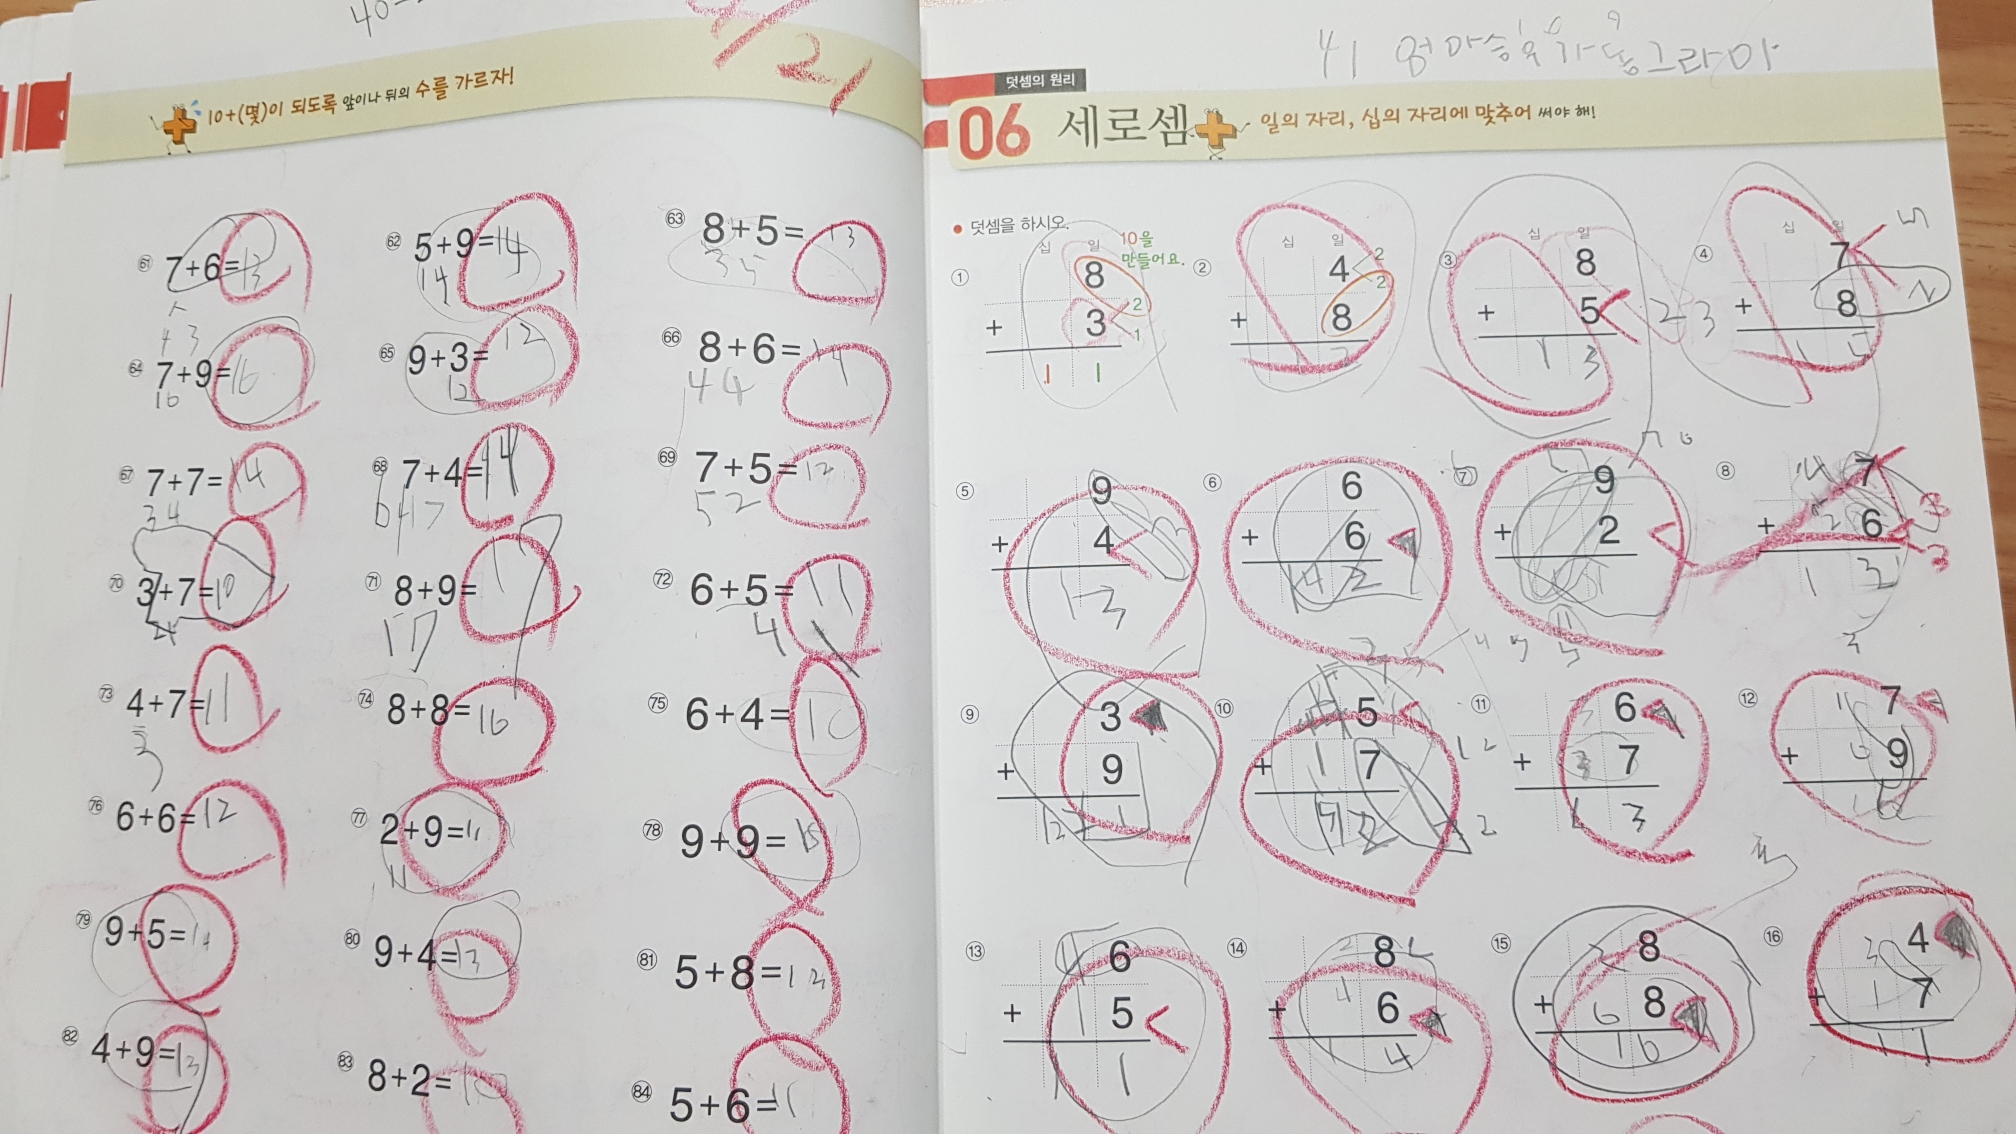 40
4/21
10+(몇)이 되도록 앞이나 뒤의 수를 가르자!
61 7+6=13
62 5+9=14
14
63 8+5=13
3 5
4 3
64 7+9=16
16
65 9+3=12
12
66 8+6=14
4 4
67 7+7=14
3 4
68 7+4=14
69 7+5=12
5 2
70 3+7=10
71 8+9=17
17
72 6+5=11
4 1
73 4+7=11
74 8+8=16
75 6+4=10
76 6+6=12
77 2+9=11
11
78 9+9=18
79 9+5=14
80 9+4=13
81 5+8=13
82 4+9=13
83 8+2=10
84 5+6=11
41
덧셈의 원리
06 세로셈 일의 자리, 십의 자리에 맞추어 써야 해!
덧셈을 하시오.
① 십 일
8
+ 3
1 1
10을
만들어요.
2
1
② 십 일
4
+ 8
2
2
③ 십 일
8
+ 5
1 3
2 3
④ 십 일
7
+ 8
1 5
5
2
⑤ 9
+ 4
1 3
⑥ 6
+ 6
⑦ 9
+ 2
⑧ 7
+ 6
1 3
⑨ 3
+ 9
12
⑩ 5
+ 7
12
⑪ 6
+ 7
1 3
⑫ 7
+ 9
⑬ 6
+ 5
1 1
⑭ 8
+ 6
1 4
⑮ 8
+ 8
1 6
⑯ 4
+ 7
1 1